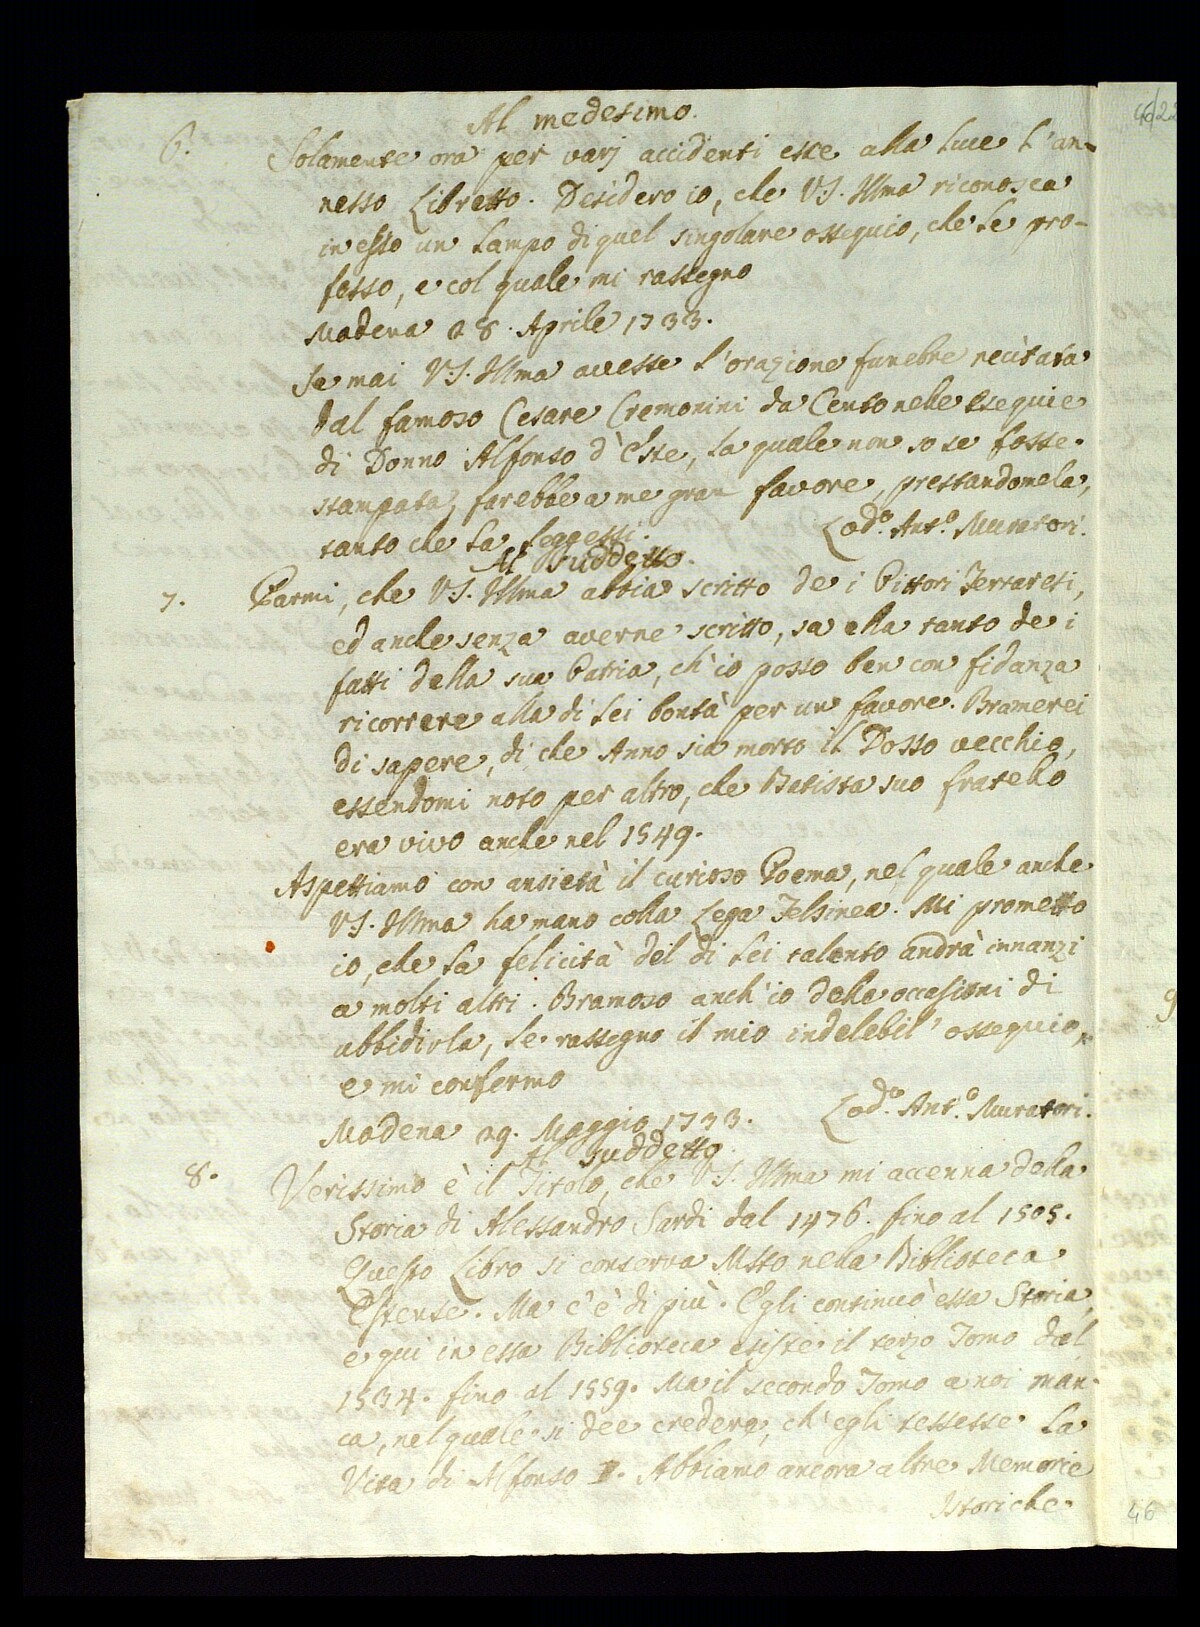 Al medesimo.
6. Solamente ora per varj accidenti esce alla luce l'an-
nesso Libretto. Desidero io, che V.S. Illma riconosca
in esso un lampo di quel singolare ossequio, che le pro-
fesso, e col quale mi rassegno
Modena 28. Aprile 1733.
Se mai V.S. Illma avesse l'orazione funebre recitata
dal famoso Cesare Cremonini da Cento nelle esequie
di Donno Alfonso d'Este, la quale non so se fosse
stampata, farebbe a me gran favore, prestandomela,
tanto che la leggessi.
Lod.º Ant.º Muratori.
Al suddetto.
7. Parmi, che V.S. Illma abbia scritto de i Pittori Ferraresi,
ed anche senza averne scritto, sa ella tanto de i
fatti della sua Patria, ch'io posso ben con fidanza
ricorrere alla di lei bontà per un favore. Bramerei
di sapere, di che Anno sia morto il Dosso vecchio,
essendomi noto per altro, che Batista suo fratello
era vivo anche nel 1549.
Aspettiamo con ansietà il curioso Poema, nel quale anche
V.S. Illma ha mano colla Lega Felsinea. Mi prometto
io, che la felicità del di lei talento andrà innanzi
a molti altri. Bramoso anch'io delle occasioni di
ubbidirla, le rassegno il mio indelebil' ossequio,
e mi confermo
Modena 29. Maggio 1733.
Lod.º Ant.º Muratori.
Al suddetto.
8. Verissimo è il Titolo, che V.S. Illma mi accenna della
Storia di Alessandro Sardi dal 1476. fino al 1505.
Questo Libro si conserva MSto nella Biblioteca
Estense. Ma c'è di più. Egli continuò essa Storia,
e qui in essa Biblioteca esiste il terzo Tomo dal
1534. fino al 1559. Ma il secondo Tomo a noi man-
ca, nel quale si dee credere, ch'egli tessesse la
Vita di Alfonso I. Abbiamo ancora altre Memorie
Istoriche
46